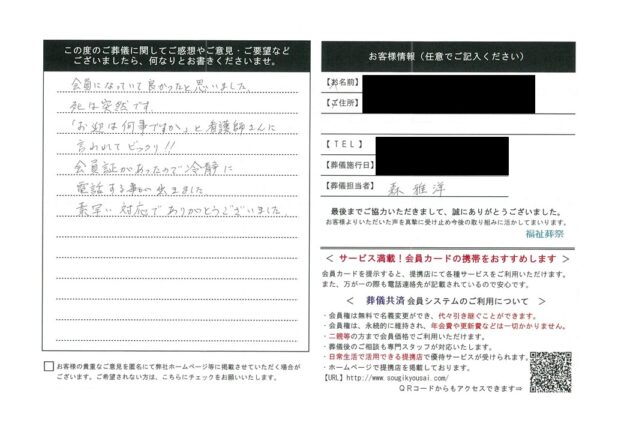 この度のご葬儀に関してご感想やご意見・ご要望など
ございましたら、何なりとお書きくださいませ。
会員になっていて良かったと思いました。
死は突然です。
「お迎は何事ですか」と看護師さんに
言われてビックリ!!
会員証があったので冷静に
電話する事が出来ました
素早い対応でありがとうございました。
お客様の貴重なご意見を匿名にて弊社ホームページ等に掲載させていただく場合が
ございます。ご希望されない方は、こちらにチェックをお願いいたします。
お客様情報(任意でご記入ください)
【お名前】
【ご住所】
【TEL】
【葬儀施行日】
【葬儀担当者】 森 雅洋
最後までご協力いただきまして、誠にありがとうございました。
お客様よりいただいた声を真摯に受け止め今後の取り組みに活かしてまいります。
福祉葬祭
< サービス満載!会員カードの携帯をおすすめします >
会員カードを提示すると、提携店にて各種サービスをご利用いただけます。
また、万が一の際も電話連絡先が記載されているので安心です。
< 葬儀共済 会員システムのご利用について >
・会員権は無料で名義変更ができ、代々引き継ぐことができます。
・会員権は、永続的に維持され、年会費や更新費などは一切かかりません。
・二親等の方まで会員価格でご利用いただけます。
・葬儀後のご相談も専門スタッフが対応いたします。
・日常生活で活用できる提携店で優待サービスが受けられます。
・ホームページで提携店を掲載しております。
【URL】http://www.sougikyousai.com/
QRコードからもアクセスできます⇒